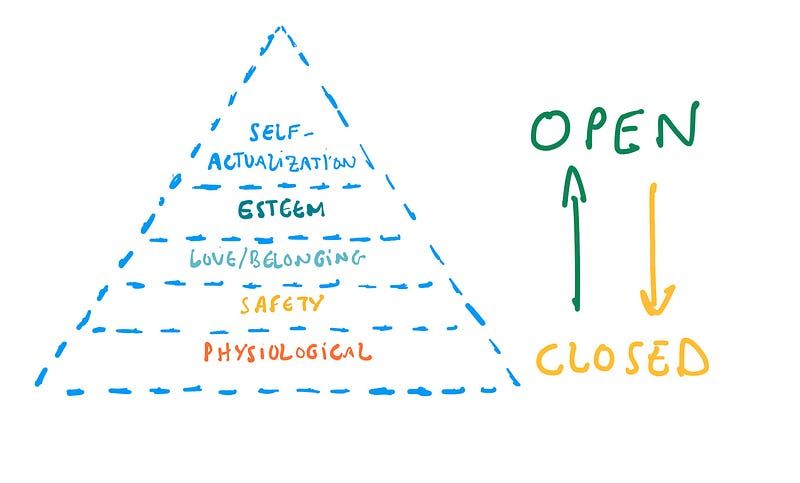 SELF-
ACTUALIZATION
ESTEEM
LOVE/BELONGING
SAFETY
PHYSIOLOGICAL
OPEN
CLOSED